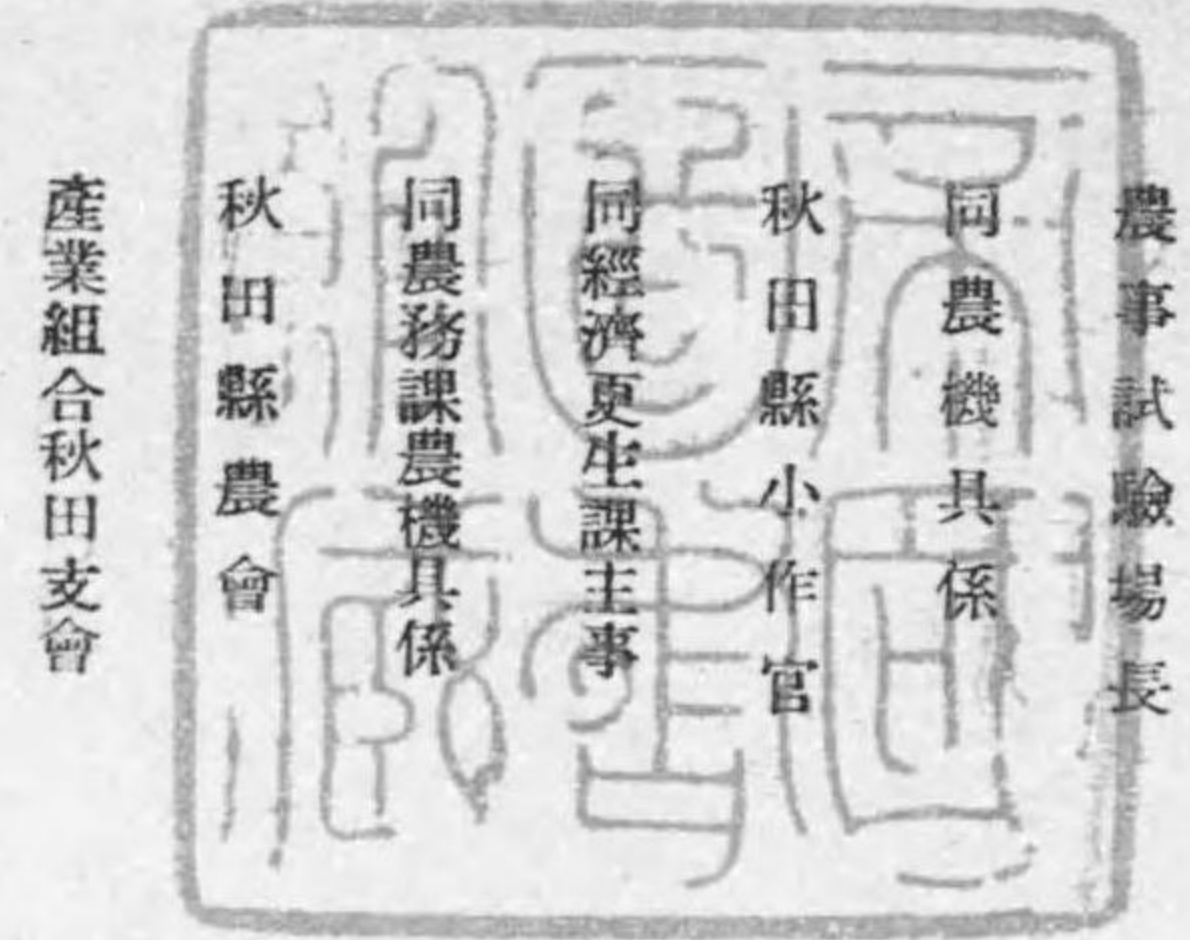 農事試驗場長
同農機具係
秋田縣小作官
同經濟更生課主事
同農務課農機具係
秋田縣農會
產業組合秋田支會